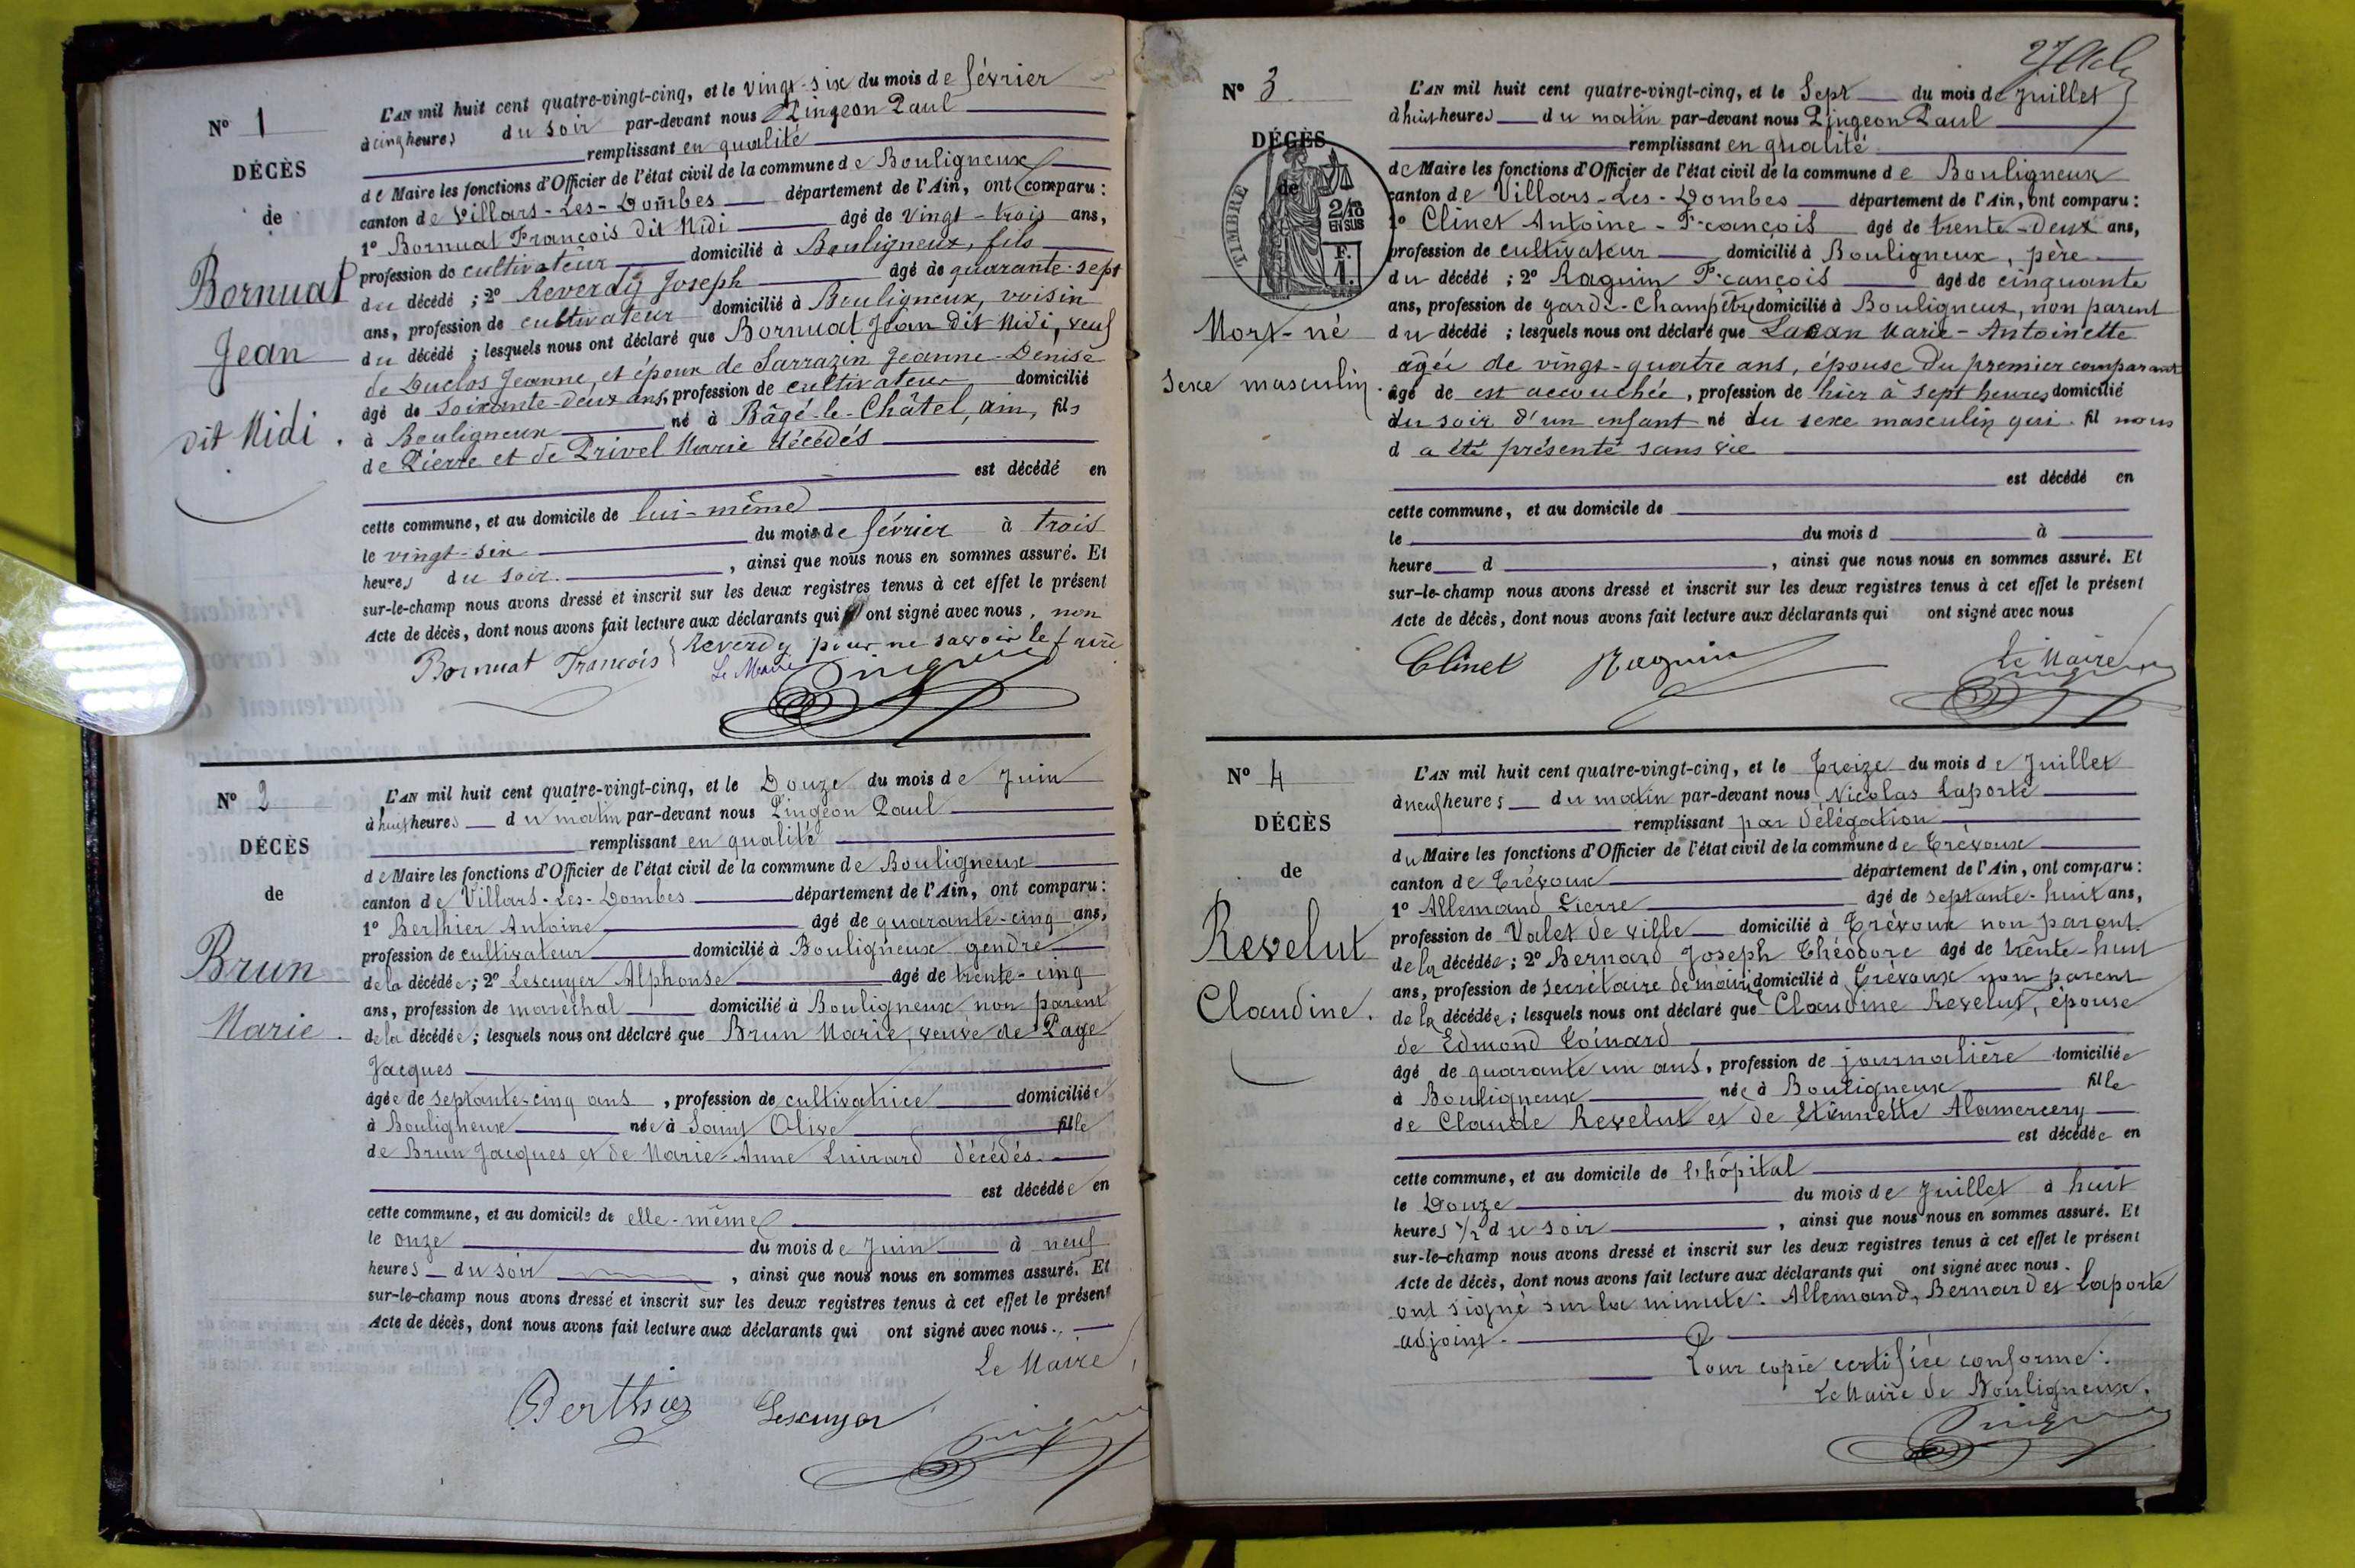 N° 1
DÉCÈS
de
Bornuat
Jean
dit Midi.
L'AN mil huit cent quatre-vingt-cinq, et le vingt-six du mois de février
à cinq heures du soir par-devant nous Pingeon Paul
remplissant en qualité
de Maire les fonctions d'Officier de l'état civil de la commune de Bouligneux
canton de Villars-Les-Dombes département de l'Ain, ont comparu :
1° Bornuat François dit Midi âgé de vingt-trois ans,
profession de cultivateur domicilié à Bouligneux, fils
du décédé ; 2° Reverdy Joseph âgé de quarante-sept
ans, profession de cultivateur domicilié à Bouligneux, voisin
du décédé ; lesquels nous ont déclaré que Bornuat Jean dit Midi, veuf
de Duclos Jeanne, et époux de Sarrazin Jeanne-Denise
âgé de soixante-deux ans, profession de cultivateur domicilié
à Bouligneux né à Bâgé-le-Châtel, ain, fils
de Pierre et de Privel Marie décédés
est décédé en
cette commune, et au domicile de lui-même
le vingt-six du mois de février à trois
heures du soir. , ainsi que nous nous en sommes assuré. Et
sur-le-champ nous avons dressé et inscrit sur les deux registres tenus à cet effet le présent
Acte de décès, dont nous avons fait lecture aux déclarants qui ont signé avec nous, non
Reverdy pour ne savoir le faire
Bornuat François Le Maire Pingeon
N° 2
DÉCÈS
de
Brun
Marie.
L'AN mil huit cent quatre-vingt-cinq, et le Douze du mois de Juin
à huit heures du matin par-devant nous Pingeon Paul
remplissant en qualité
de Maire les fonctions d'Officier de l'état civil de la commune de Bouligneux
canton de Villars-Les-Dombes département de l'Ain, ont comparu :
1° Berthier Antoine âgé de quarante-cinq ans,
profession de cultivateur domicilié à Bouligneux gendre
de la décédée ; 2° Lescuyer Alphonse âgé de trente-cinq
ans, profession de maréchal domicilié à Bouligneux non parent
de la décédée ; lesquels nous ont déclaré que Brun Marie, veuve de Page
Jacques
âgée de septante-cinq ans , profession de cultivatrice domiciliée
à Bouligneux née à Saint Olive fille
de Brun Jacques et de Marie-Anne Luirard décédés
est décédée en
cette commune, et au domicile de elle-même
le onze du mois de Juin à neuf
heures du soir , ainsi que nous nous en sommes assuré. Et
sur-le-champ nous avons dressé et inscrit sur les deux registres tenus à cet effet le présent
Acte de décès, dont nous avons fait lecture aux déclarants qui ont signé avec nous.
Le Maire,
Berthier Lescuyer Pingeon
N° 3
DÉCÈS
de
TIMBRE
2/10
EN SUS
F.
1.
Mort-né
sexe masculin.
L'AN mil huit cent quatre-vingt-cinq, et le Sept du mois de Juillet
à huit heures du matin par-devant nous Pingeon Paul
remplissant en qualité
de Maire les fonctions d'Officier de l'état civil de la commune de Bouligneux
canton de Villars-Les-Dombes département de l'Ain, ont comparu :
1° Clinet Antoine-François âgé de trente-deux ans,
profession de cultivateur domicilié à Bouligneux, père
du décédé ; 2° Raguin François âgé de cinquante
ans, profession de garde-champêtre domicilié à Bouligneux, non parent
du décédé ; lesquels nous ont déclaré que Marie-Antoinette
agée de vingt-quatre ans, épouse du premier comparant
âgé de est accouchée, profession de hier à sept heures domicilié
du soir d'un enfant né du sexe masculin qui fil nous
d a été présenté sans vie
est décédé en
cette commune, et au domicile de
le du mois d à
heure d , ainsi que nous nous en sommes assuré. Et
sur-le-champ nous avons dressé et inscrit sur les deux registres tenus à cet effet le présent
Acte de décès, dont nous avons fait lecture aux déclarants qui ont signé avec nous
Clinet Raguin Le Maire Pingeon
N° 4
DÉCÈS
de
Revelut
Claudine.
L'AN mil huit cent quatre-vingt-cinq, et le Treize du mois de Juillet
à neuf heures du matin par-devant nous Nicolas Laporte
remplissant par délégation
du Maire les fonctions d'Officier de l'état civil de la commune de Trévoux
canton de Trévoux département de l'Ain, ont comparu :
1° Allemand Pierre âgé de septante-huit ans,
profession de Valet de ville domicilié à Trévoux non parent
de la décédée ; 2° Bernard Joseph Théodore âgé de trente-huit
ans, profession de secrétaire de mairie domicilié à Trévoux non parent
de la décédée ; lesquels nous ont déclaré que Claudine Revelut, épouse
de Edmond Coinard
âgé de quarante un ans, profession de journalière domiciliée
à Bouligneux née à Bouligneux fille
de Claude Revelut et de Etiennette Alamercery
est décédée en
cette commune, et au domicile de l'hôpital
le Douze du mois de Juillet à huit
heures 1/2 du soir , ainsi que nous nous en sommes assuré. Et
sur-le-champ nous avons dressé et inscrit sur les deux registres tenus à cet effet le présent
Acte de décès, dont nous avons fait lecture aux déclarants qui ont signé avec nous.
ont signé sur la minute : Allemand, Bernard et Laporte
adjoint.
Pour copie certifiée conforme :
Le Maire de Bouligneux.
Pingeon